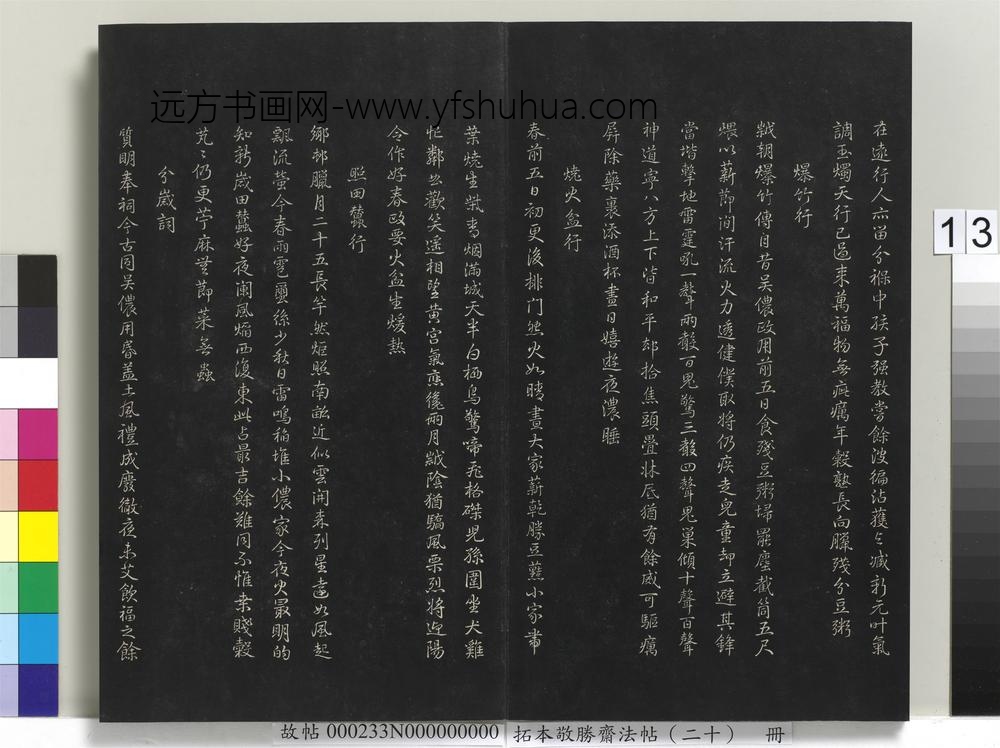 在遠行人亦留分褓中孩子强教嘗餘波徧沾獲與臧新元叶氣
調玉燭天行已過來萬福物無疵癘年穀熟長向臘殘分豆粥
爆竹行
歲朝爆竹傳自昔吳儂政用前五日食殘豆粥掃罷塵截筒五尺
煨以薪節間汗流火力透健僕取將仍疾走兒童却立避其鋒
當堦擊地雷霆吼一聲兩聲百鬼驚三聲四聲鬼巢傾十聲百聲
神道寧八方上下皆和平却拾焦頭疊牀底猶有餘威可驅癘
屏除藥裹添酒杯晝日嬉遊夜濃睡
燒火盆行
春前五日初更後排門然火如晴晝大家薪乾勝豆䕸小家帶
葉燒生柴青烟滿城天半白栖鳥驚啼飛格磔兒孫圍坐犬雞
忙鄰曲歡笑遙相望黃宮氣應纔兩月歲陰猶驕風栗烈將迎陽
合作好春政要火盆生煖熱
照田蠶行
鄉邨臘月二十五長竿然炬照南畝近似雲開森列星遠如風起
飄流螢今春雨雹繭絲少秋日雷鳴稻堆小儂家今夜火最明的
知新歲田蠶好夜闌風焰西復東此占最吉餘難同不惟桑賤穀
芃芃仍更苧麻無節菜無蟲
分歲詞
質明奉祠今古同吳儂用昏蓋土風禮成廢徹夜未艾飲福之餘
远方书画网-www.yfshuhua.com
13
故帖 000233N000000000 拓本敬勝齋法帖（二十） 冊